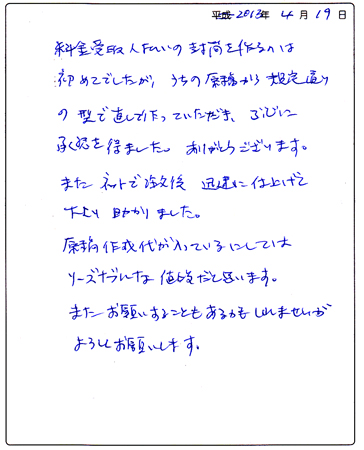 平成 2013年 4月 19日
料金受取人払いの封筒を作るのは
初めてでしたが、うちの原稿から規定通り
の型で直して作っていただき、ぶじに
承認を得ました。ありがとうございます。
また ネットで注文後 迅速に仕上げて
下さり 助かりました。
原稿作成代が入っているにしては
リーズナブルな値段だと思います。
またお願いすることもあるかもしれませんが
よろしくお願いします。